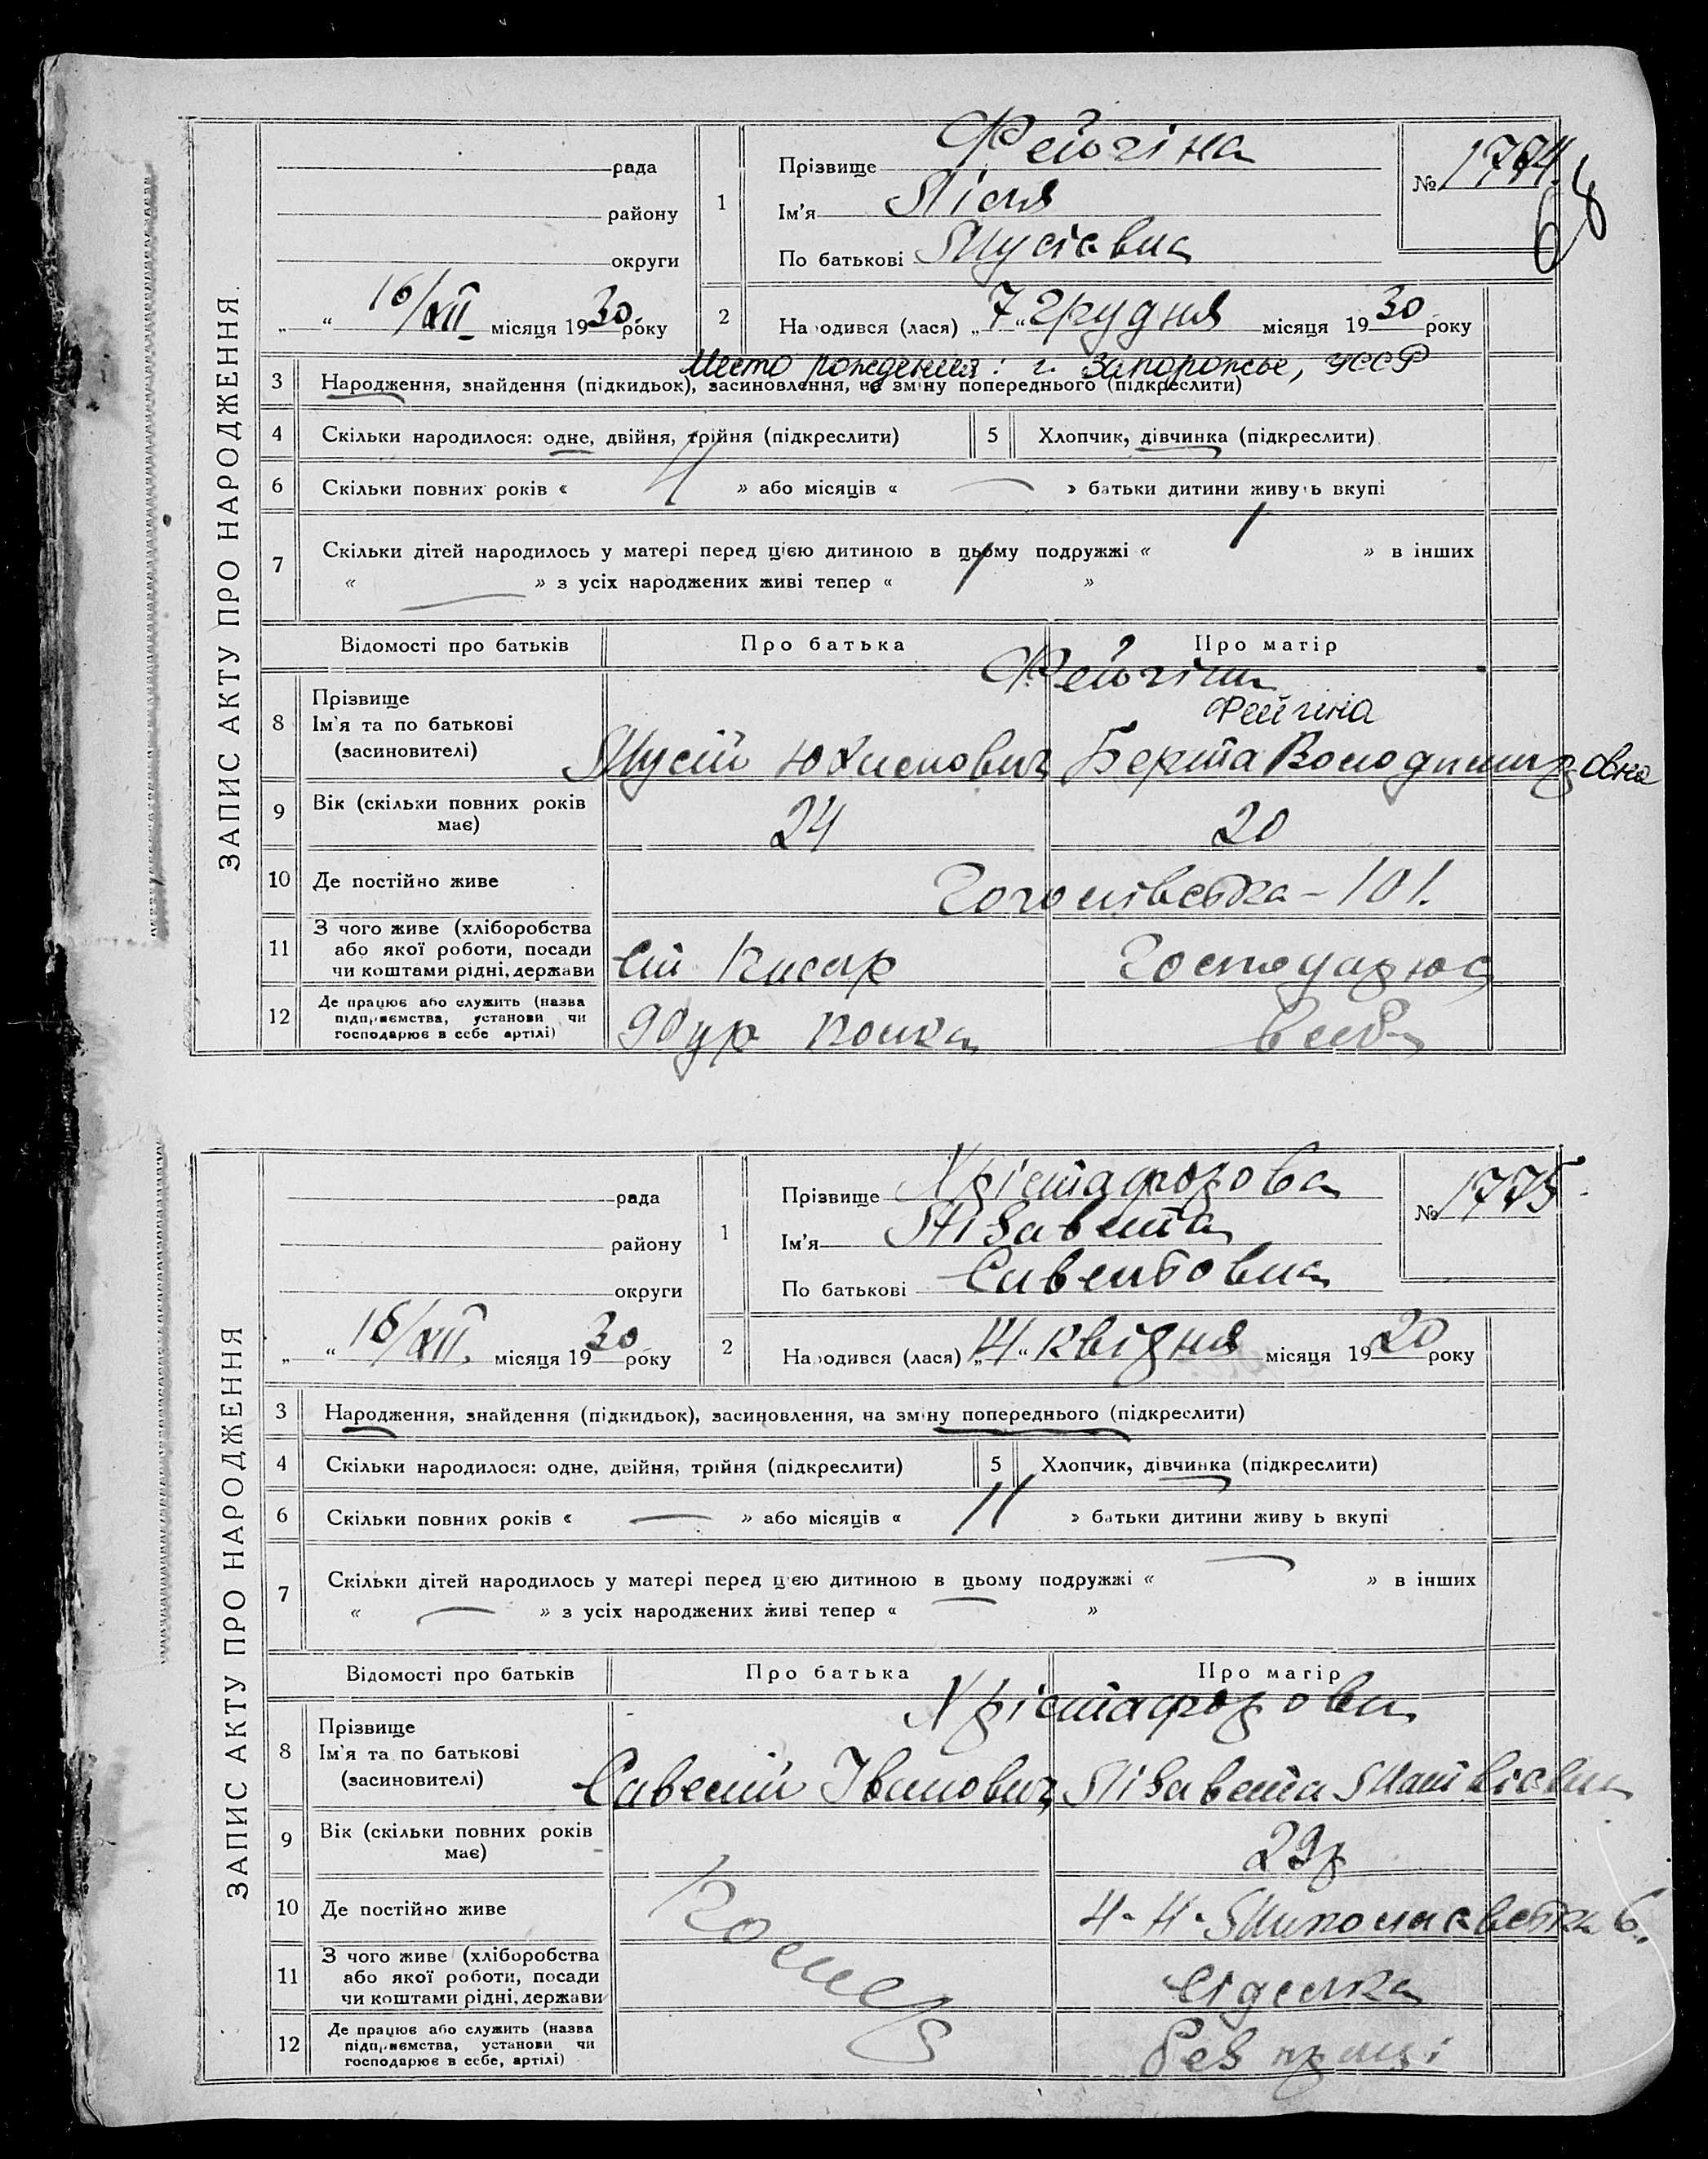 ЗАПИС АКТУ ПРО НАРОДЖЕННЯ.
рада
району
округи
„ “ 16/XII місяця 1930 року
1 Прізвище Фейгіна
Ім'я Ліля
По батькові Мусієвна
№ 1774.
68
2 Народився (лася) „7“ грудня місяця 1930 року
Место рождения: г. Запорожье, УССР
3 Народження, знайдення (підкидьок), засиновлення, на зміну попереднього (підкреслити)
4 Скільки народилося: одне, двійня, трійня (підкреслити)
5 Хлопчик, дівчинка (підкреслити)
6 Скільки повних років « 4 » або місяців « — » батьки дитини живуть вкупі
7 Скільки дітей народилось у матері перед цією дитиною в цьому подружжі « 1 » в інших
« — » з усіх народжених живі тепер « 1 »
Відомості про батьків Про батька Про матір
8 Прізвище
Ім'я та по батькові
(засиновителі)
Фейгіни
Фейгина
Мусій Юхимович Берта Володимировна
9 Вік (скільки повних років має) 24 20
10 Де постійно живе Гоголівська – 101.
11 З чого живе (хліборобства або якої роботи, посади чи коштами рідні, держави Господарює
12 Де працює або служить (назва підприємства, установи чи господарює в себе артілі)
ЗАПИС АКТУ ПРО НАРОДЖЕННЯ
рада
району
округи
„ “ 16/XII. місяця 1930 року
1 Прізвище Хрістафорова
Ім'я Лізавета
По батькові Савельовна
№ 1775
2 Народився (лася) „14“ квітня місяця 1920 року
3 Народження, знайдення (підкидьок), засиновлення, на зміну попереднього (підкреслити)
4 Скільки народилося: одне, двійня, трійня (підкреслити)
5 Хлопчик, дівчинка (підкреслити)
6 Скільки повних років « — » або місяців « 11 » батьки дитини живуть вкупі
7 Скільки дітей народилось у матері перед цією дитиною в цьому подружжі « — » в інших
« — » з усіх народжених живі тепер « — »
Відомості про батьків Про батька Про матір
8 Прізвище
Ім'я та по батькові
(засиновителі)
Хрістафорови
Савелій Іванович Лізавета Матвієвна
9 Вік (скільки повних років має) 29р
10 Де постійно живе Миколаєвська 6.
11 З чого живе (хліборобства або якої роботи, посади чи коштами рідні, держави
12 Де працює або служить (назва підприємства, установи чи господарює в себе, артілі) Без праці
помер